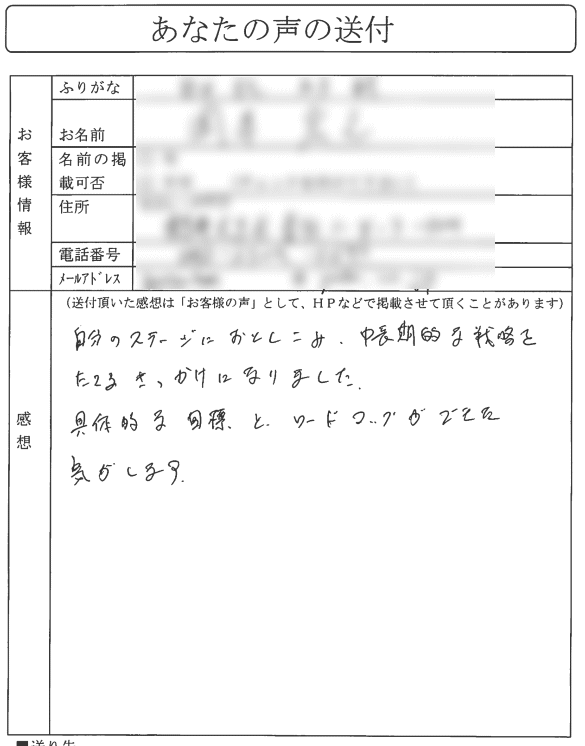 あなたの声の送付
お客様情報
ふりがな
お名前
名前の掲載可否
住所
電話番号
メールアドレス
感想
(送付頂いた感想は「お客様の声」として、HPなどで掲載させて頂くことがあります)
自分のステージにおとしこみ、中長期的な戦略を
たてるきっかけになりました。
具体的な目標と、ロードマップができた
気がします。
■送り先